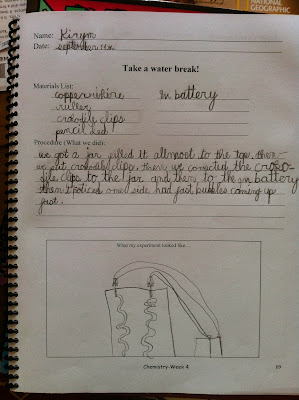 NATIONAL
GEOGRAPHIC
Name: Kirym
Date: september
Take a water break!
Materials List:
copper wire 9v battery
ruller
crokodile clips
pencil led
Procedure (What we did):
we got a jar filled it allmost to the top, then
we put crokodile clips, then we conected the croko-
dile clips to the jar and then to the 9v battery
then I noticed one side had fast bubbles coming up
fast.
What my experiment looked like...
Chemistry-Week 4